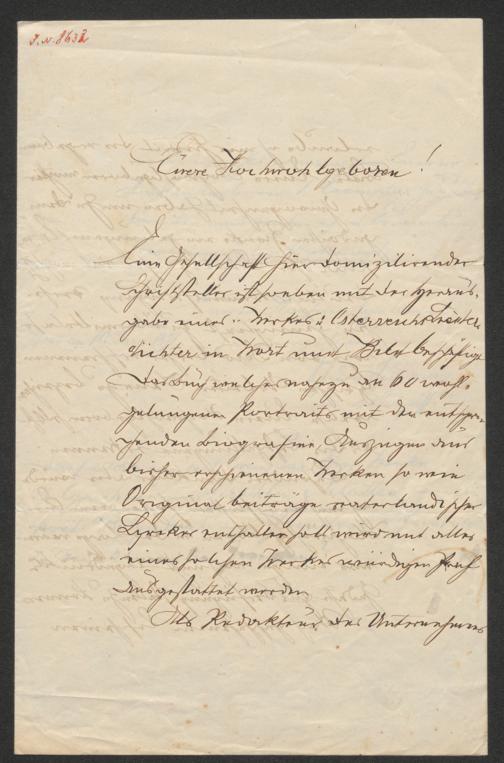 J.N. 8632
Euere Hochwohlgeboren!
Eine Gesellschaft hier domizilirender
Schriftsteller ist soeben mit der Heraus-
gabe eines Werkes: Österreichs
dichter in Wort und Bild beschäftigt
Das Buch welches nahezu an 60 wohl-
gelungene Portraits mit den entspre-
chenden Biografien, Auszügen aus
bisher erschienenen Werken so wie
Original beiträge vaterländischer
Lyriker enthalten soll wird mit aller
eines solchen Werkes würdigen
ausgestattet werden
Als Redakteur des Unternehmens